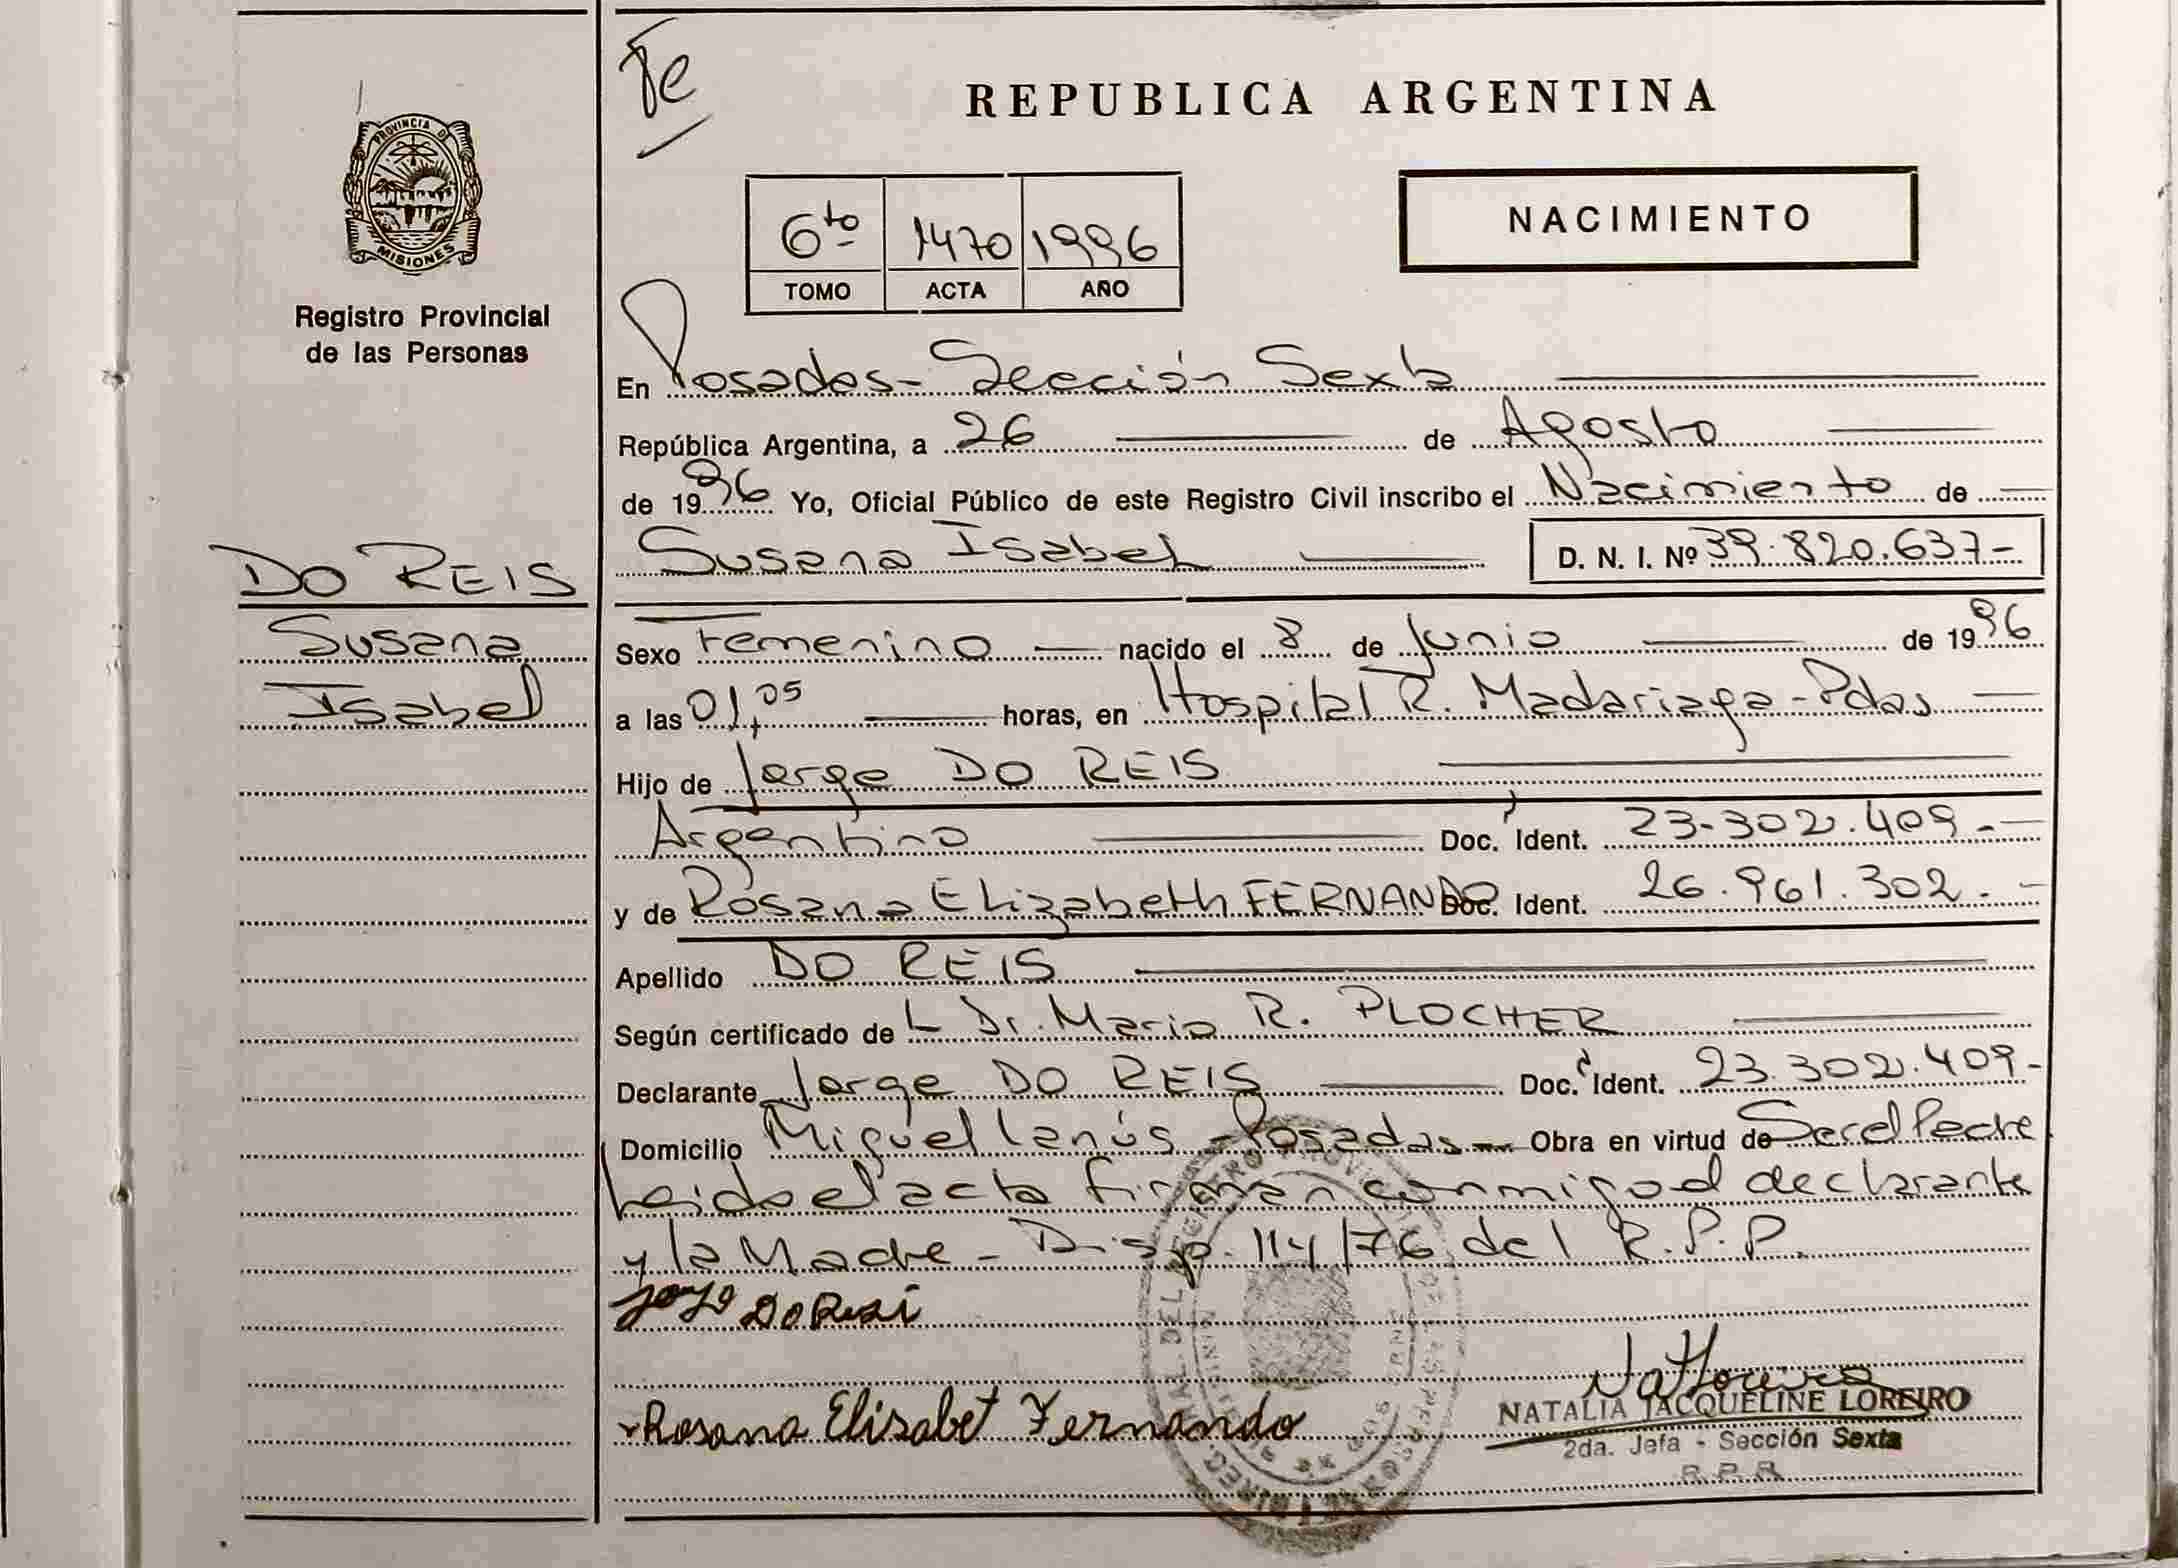 Te
REPUBLICA ARGENTINA
PROVINCIA DE
MISIONES
Registro Provincial
de las Personas
6to 1470 1996
TOMO ACTA AÑO
NACIMIENTO
En Posadas - Sección Sexta
República Argentina, a 26 de Agosto
de 1996 Yo, Oficial Público de este Registro Civil inscribo el Nacimiento de
Susana Isabel D. N. I. Nº 39.820.637-
DO REIS
Susana
Isabel
Sexo Femenino nacido el 8 de Junio de 1996
a las 01,05 horas, en Hospital R. Madariaga - Pdas
Hijo de Jorge DO REIS
Argentino Doc. Ident. 23.302.409.-
y de Rosana Elizabeth FERNANDO Doc. Ident. 26.961.302.-
Apellido DO REIS
Según certificado de L Dr. Mario R. PLOCHER
Declarante Jorge DO REIS Doc. Ident. 23.302.409-
Domicilio Miguel Lanús - Posadas - Obra en virtud de Ser el Padre
Leido el acta firman conmigo el declarante
y la Madre - Disp. 114/76 del R.P.P.
Rosana Elisabet Fernando
NATALIA JACQUELINE LOREIRO
2da. Jefa - Sección Sexta
R.P.P.